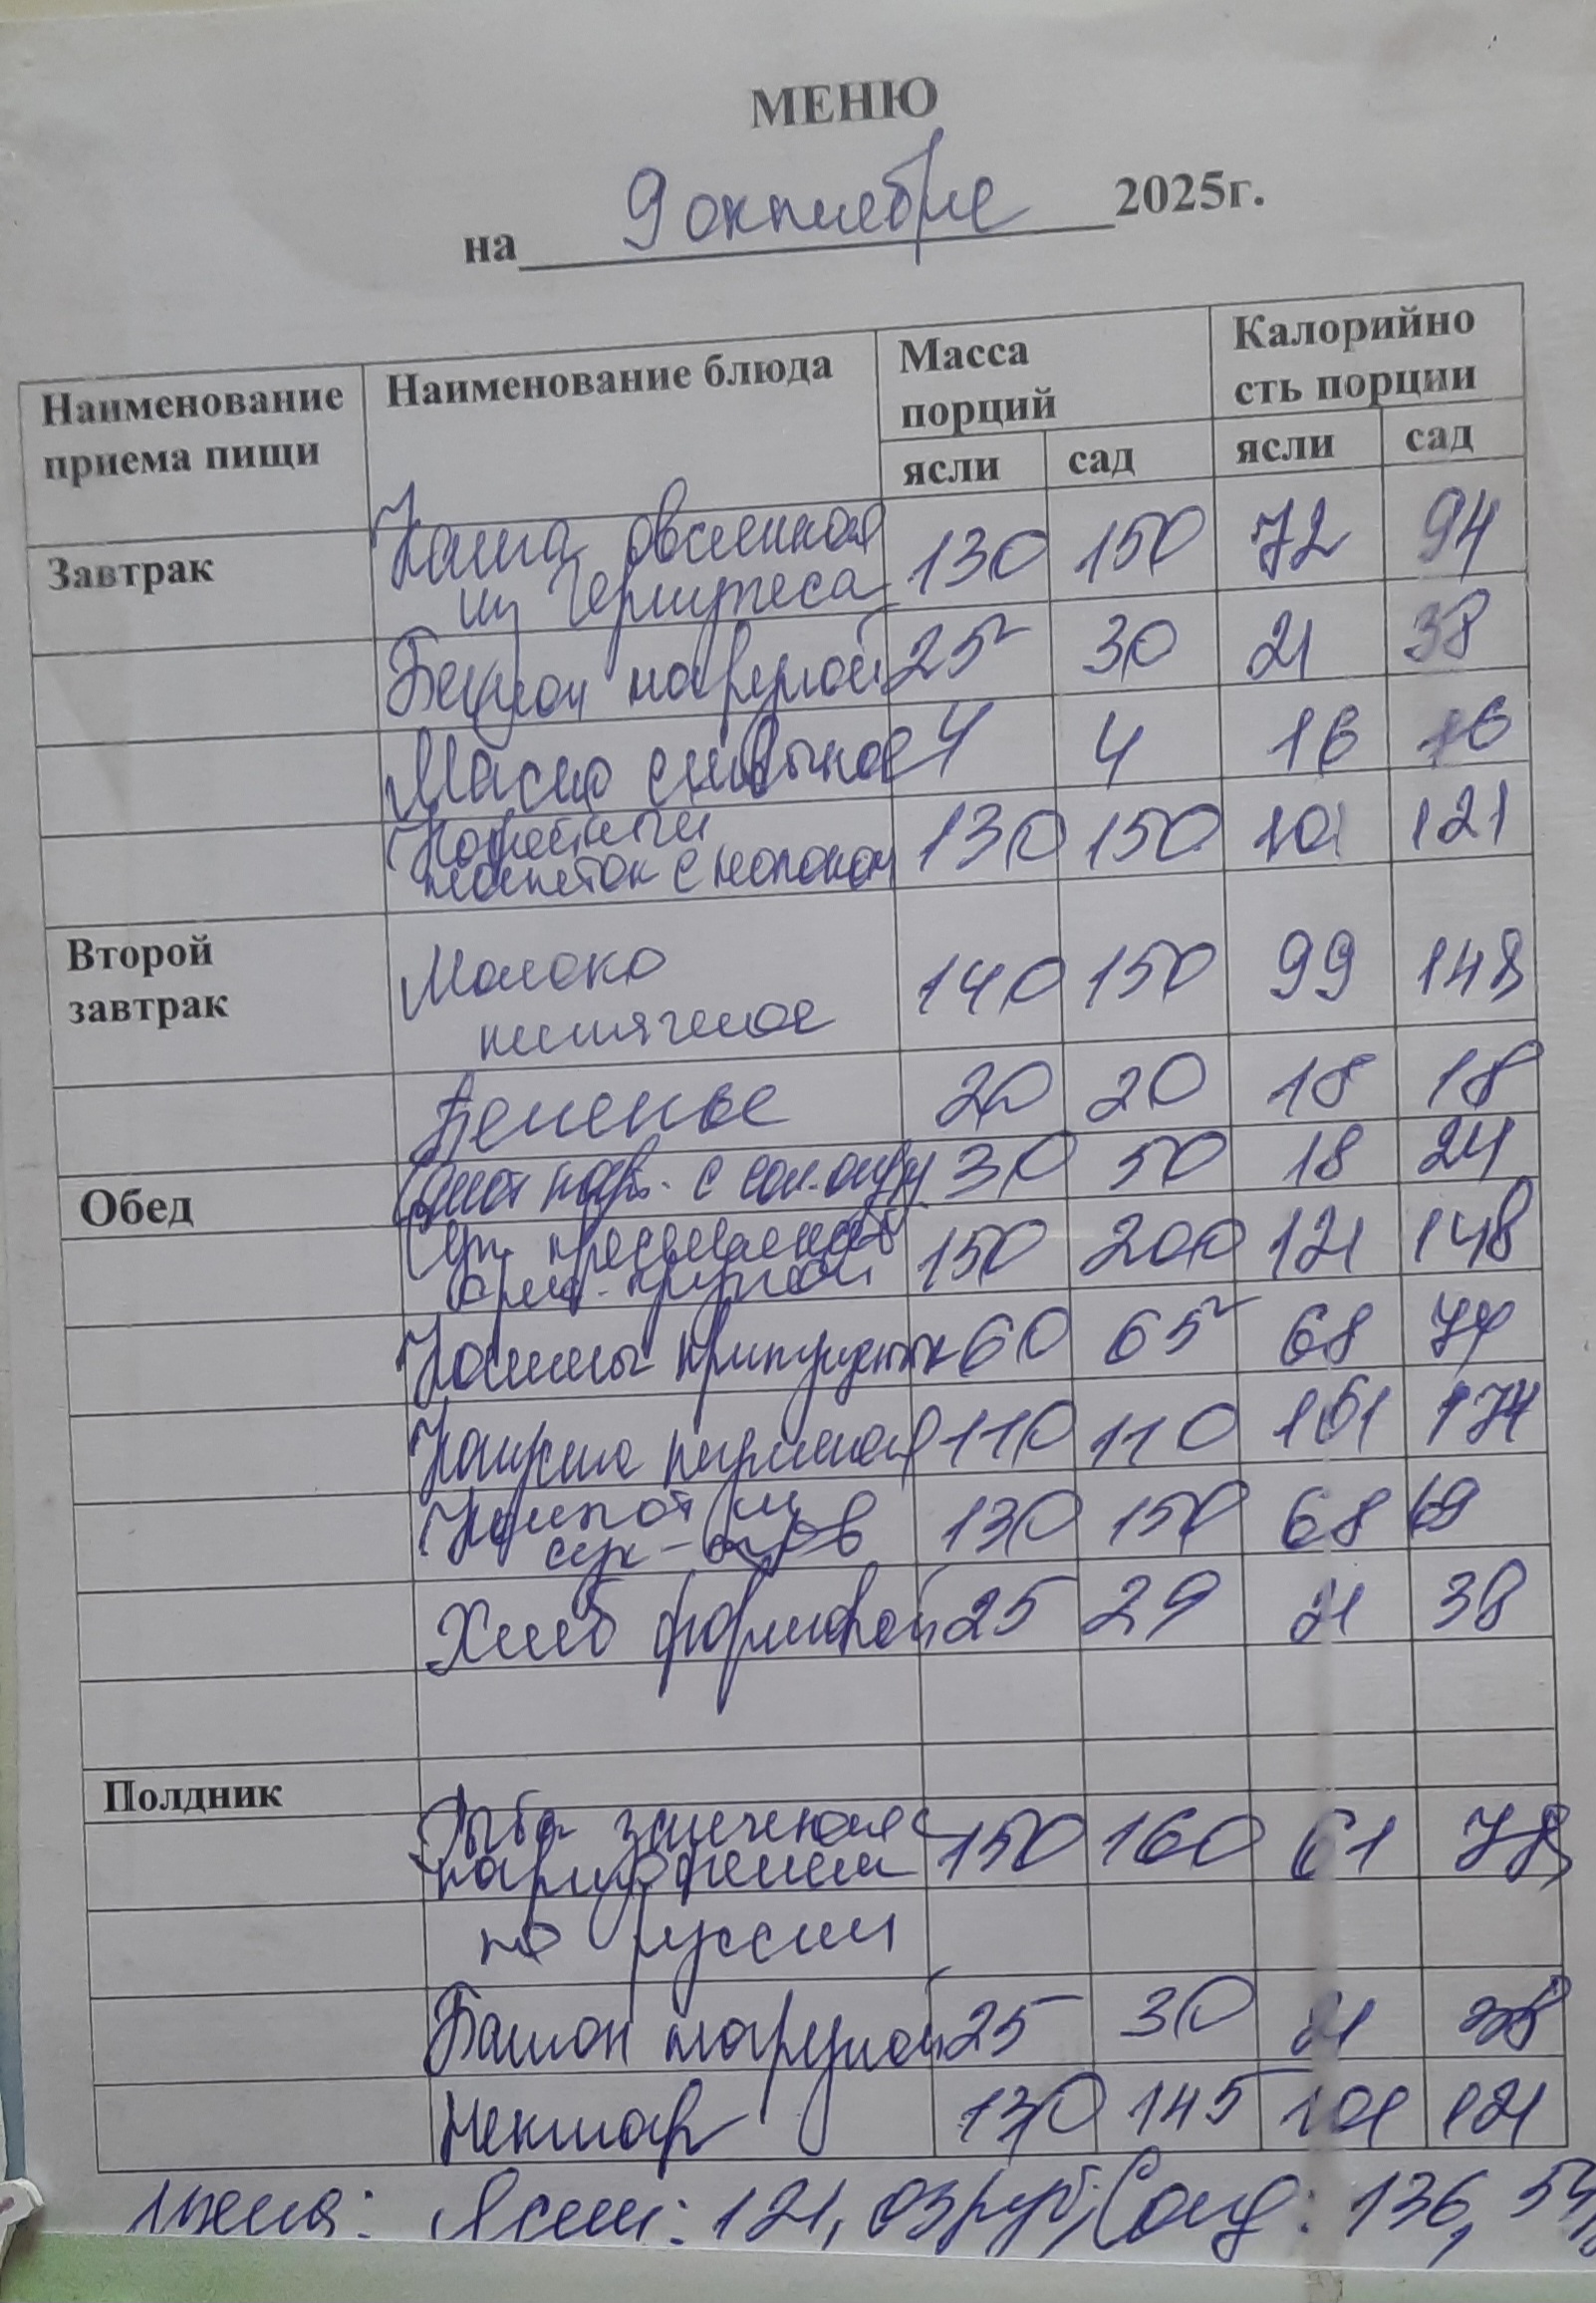 МЕНЮ
на 9 октября 2025г.
Наименование приема пищи Наименование блюда Масса порций Калорийно сть порции
ясли сад ясли сад
Завтрак Каша овсяная из Геркулеса 130 150 72 94
Батон нарезной 25 30 21 38
Масло сливочное 4 4 16 16
Кофейный напиток с молоком 130 150 101 121
Второй завтрак Молоко кипяченое 140 150 99 148
Печенье 20 20 18 18
Обед Салат с сол. огур 30 50 18 24
Суп крупой 150 200 121 148
припущенные 60 65 68 74
Капуста 110 110 161 174
Компот из сух-ов 130 150 68 69
Хлеб формовой 25 29 21 38
Полдник
Рыба запеченая с картофелем 150 160 61 78
по русски
Батон нарезной 25 30 21 38
Нектар 130 145 101 121
Ясли: 121,03 руб; Сад: 136,